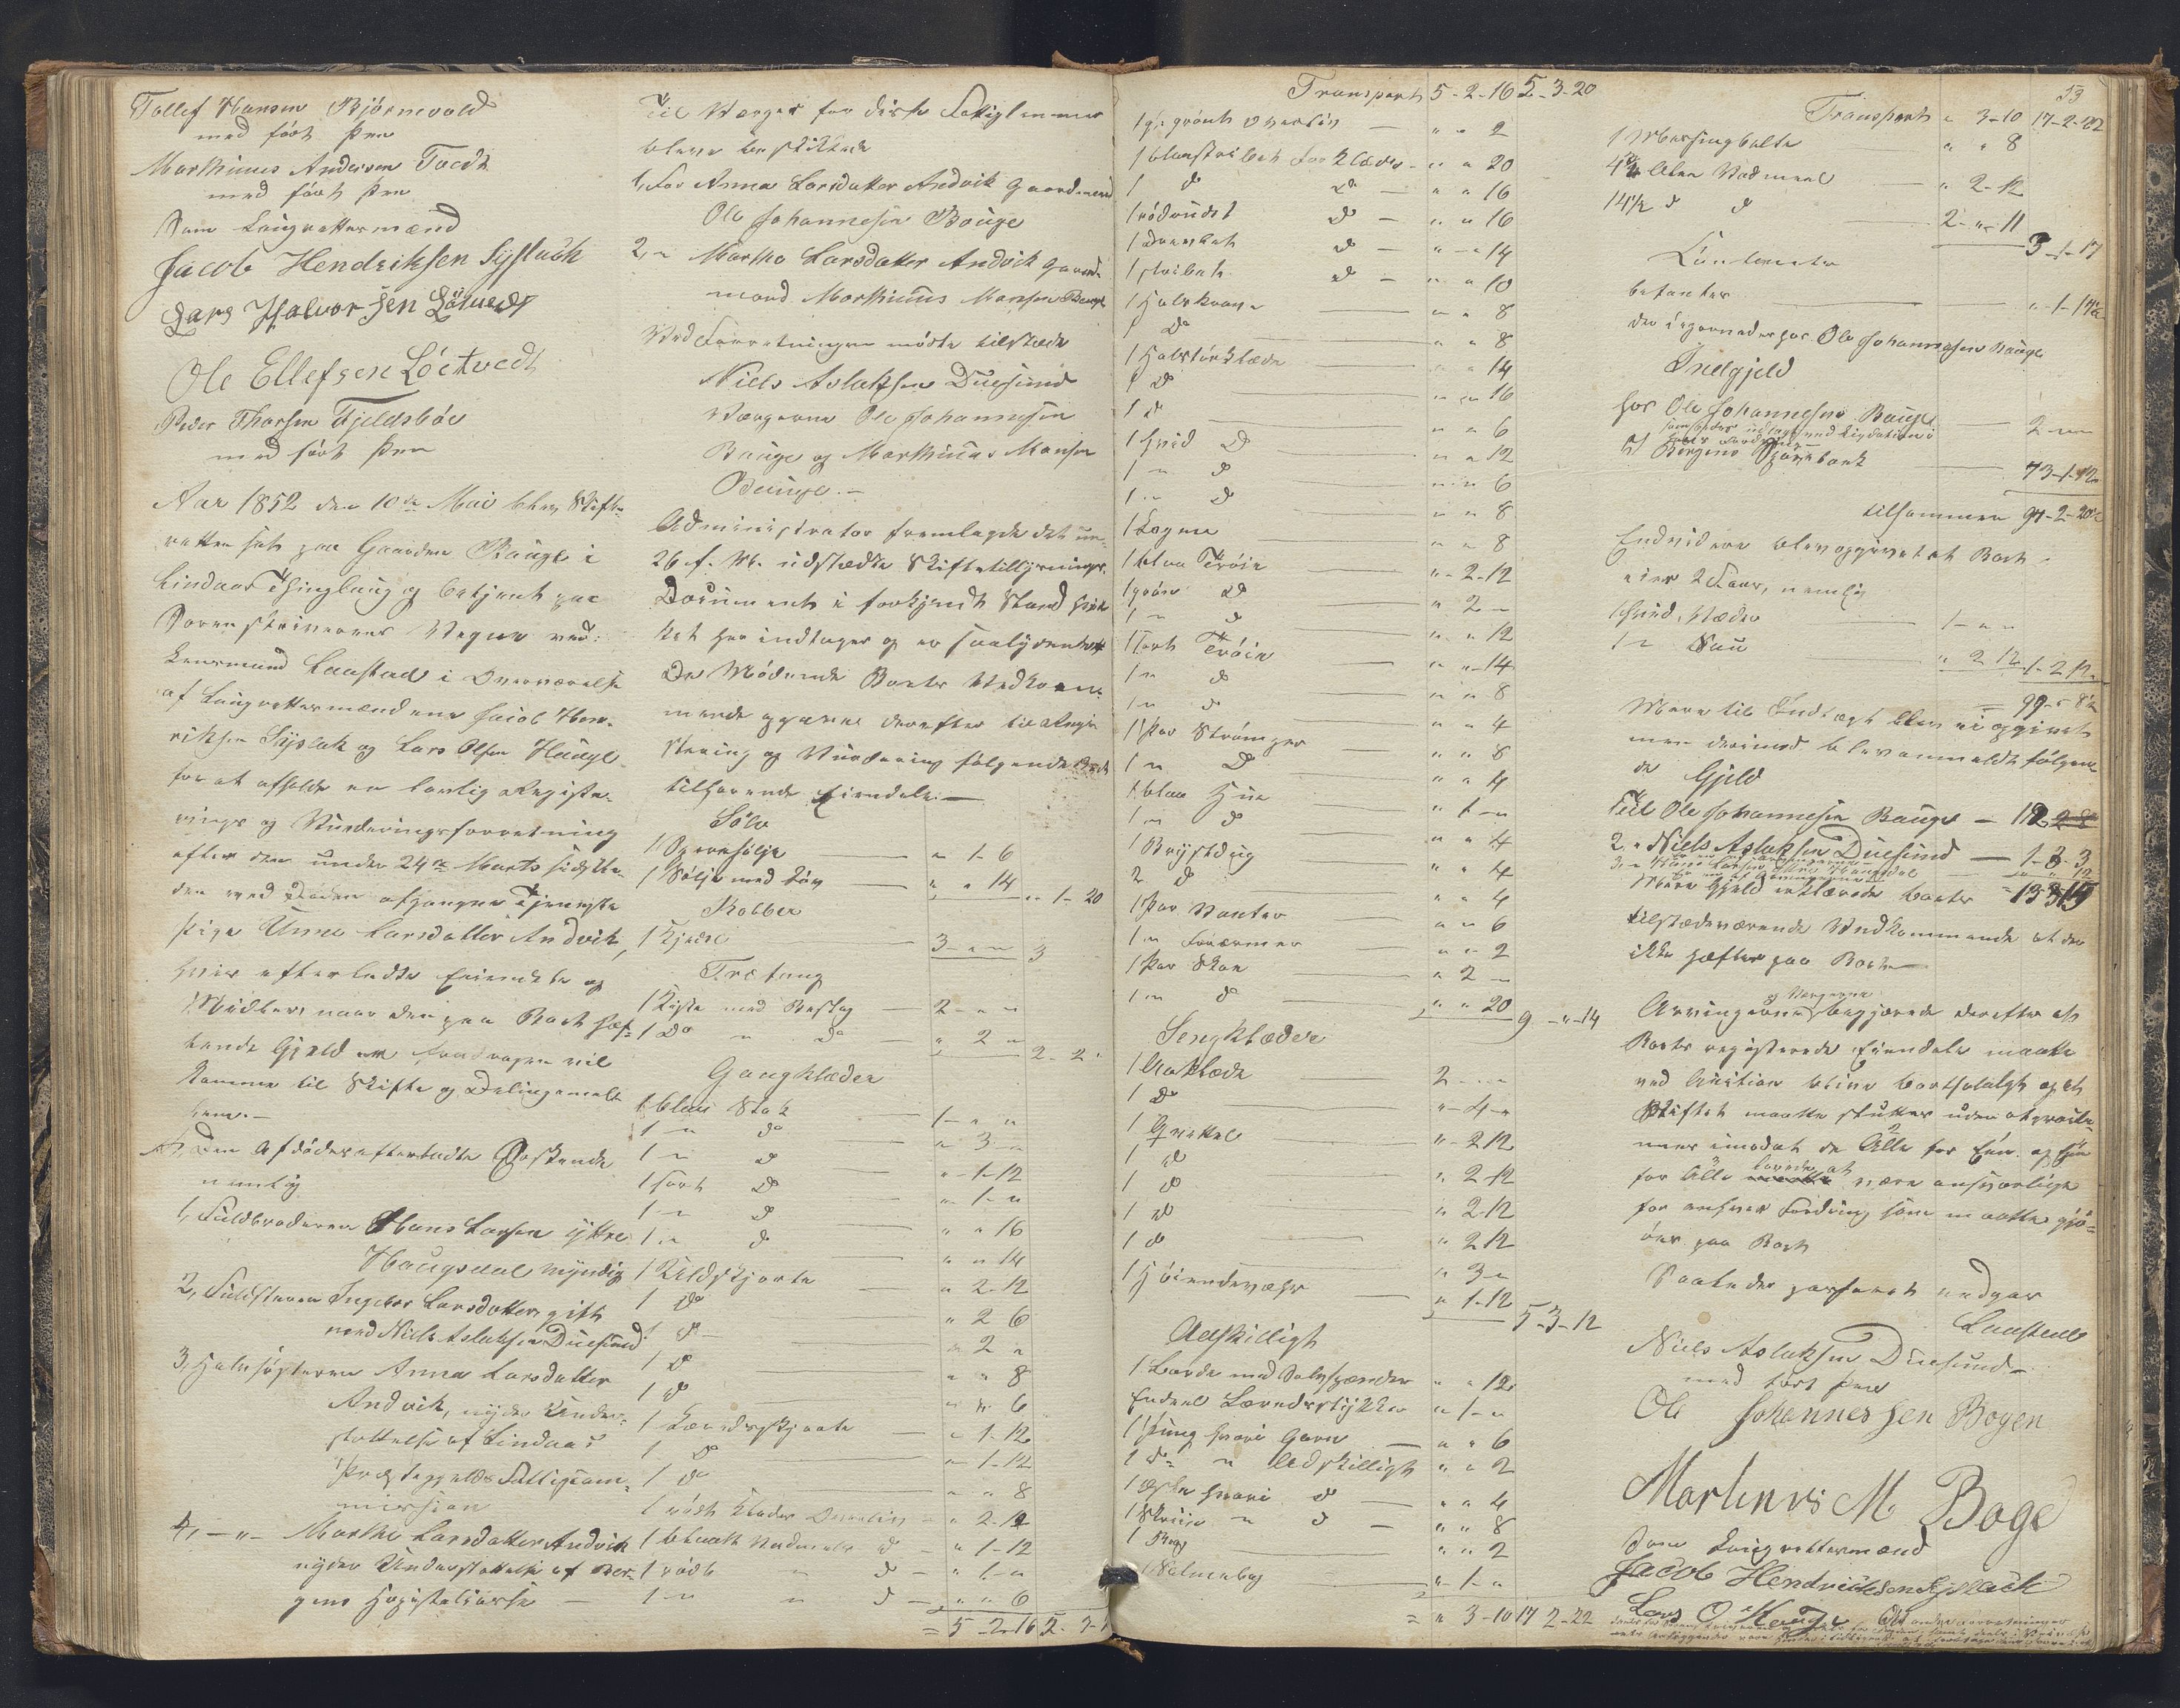 Tollef Hansen Bjørnevold
med ført Pen
Marthinus Andersen Tvedt
med ført Pen
Som Laugrettesmænd
Jacob Hendriksen Syslack
Lars Halvorsen Lötvedt
Ole Ellefsen Löitvedt
Peder Thorsen Fjeldsbøe
med ført Pen
Aar 1852 den 10de Mai blev Skifte-
retten sat paa Gaarden Bauge i
Lindaas Thinglaug og betjent paa
Sorenskriverens Vegne ved
Lensmand Laastad i Overværelse
af Laugrettesmændene Jacob Hen-
riksen Syslak og Lars Olsen Hauge
for at afholde en lovlig Registe-
rings og Vurderingsforretning
efter den under 24de Marts sidstle-
den ved Døden afgangne Tjeneste
pige Unne Larsdatter Andvik,
hvis efterladte Eiendele og
Midler, naar den paa Boet hæf-
tende Gjæld er fradragen vil
komme til Skifte og Deling imellem
hendes
Den Afdødes efterladte Søskende
nemlig
1, Fuldbroderen Hans Larsen yttre
Haugsdal myndig
2, Fuldsøsteren Ingebor Larsdatter, gift
med Niels Aslaksen Duesund
3, Halvsøsteren Anna Larsdatter
Andvik, nyder Under-
støttelse af Lindaas
Præstegjelds Fattigcom-
mission
4, — " — Marthe Larsdatter Andvik
nyder Understøttelse af Ber-
gens Hospitalskasse —
Til Værger for disse Fattiglemmer
bleve beskikkede
1, For Anna Larsdatter Andvik Gaardmand
Ole Johannesen Bauge
2, " Marthe Larsdatter Andvik Gaard-
mand Marthinus Monsen Bauge
Ved Forretningen mødte tilstæde
Niels Aslaksen Duesund
Værgerne Ole Johannesen
Bauge og Marthinus Monsen
Bauge.—
Administrator fremlagde det un-
26 f. M. udstædte Skiftetilsynings-
Document i forkyndt Stand hvil-
ket her indtages og er saalydende
De Mødende Boets Vedkom-
mende opgave derefter til Regi-
strering og Vurdering følgende Boet
tilhørende Eiendele:—
Sølv
1 Ogensølje — " 1- 6
1 Sølje med Løv — " " 14
" 1- 20
Kobber
1 Kjedel — 3 - " - " 3
Trætøng
1 Kiste med Beslag — 2 - " "
1 Do " Do — " 2 "
2 - 2 "
Gangklæder
1 blaa Stak — 1 - " "
1 " Do — " 3 "
1 " Do — " 1-12
1 sort Do — " 1- "
1 " Do — " " 16
1 " Do — " " 14
1 Uldskjorte — " 2-12
1 Do — " 2 6
1 Do — " 2 "
1 Do — " " 8
1 Do — " " 6
1 Lærredsskjorte — " 1-12
1 Do — " 1-12
1 Do — " " 8
1 rødt Klædes Overliv — " 2-12
1 blaat Vadmels Do — " 1-12
1 rødt " Do — " 1- "
1 " " Do — " " 6
= 5 - 2-16 5 - 3-
Transport 5 - 2 - 16 5 - 3 - 20
1 gl. grönt Overliv — " " 2
1 blaastribet Forklæde — " " 20
1 Do Do — " " 16
1 rödrudet Do — " " 16
1 Do — " " 14
1 stribet Do — " " 10
1 — " " 8
1 Do — " " 8
1 Halstørklæde — " " 14
1 Do — " " 16
1 Do — " " 6
1 hvid Do — " " 12
1 " Do — " " 6
1 " Do — " " 8
1 Logme — " " 8
1 blaa Tröie — " 2-12
1 grön Do — " 2 "
1 " Do — " " 12
1 sort Tröie — " " 14
1 " Do — " " 8
1 " Do — " " 4
1 Par Strömper — " " 8
1 " Do — " " 4
1 blaa Hue — " 1 - "
1 " Do — " " 4
1 Brystdug — " " 4
2 Do — " " 4
1 Par Vanter — " " 6
1 " Forærmer — " " 2
1 Par Skoe — " 2 "
1 " Do — " " 20
9 - " - 14
Sengklæder
1 Aaklæde — 2 - " "
1 Do — " 4 - "
1 Qvittel — " 2 12
1 Do — " 2 12
1 Do — " 2 12
1 Do — " 2 12
1 Do — " 3 "
1 Höiendevahr — " 1-12
5 - 3 - 12
Adskilligt
1 med — " " 12
Endeel Lærredsstykker — " 1 - "
1 Pung hvori Garn — " " 6
1 Do " Adskilligt " " 2
1 Æske hvori Do — " " 4
1 Skrin " Do — " " 8
1 — " " 2
1 Salmebog — " 1 - "
= " 3 - 10 17 2 - 22
53
Transport " 3 - 10 17 - 2 - 22
1 Messingbelte " " 8
4 1/4 Alen Vadmel — " 2 - 12
14 1/2 d d — 2 - " - 11
3 - 1 - 17
Contanter
befantes — " - 1 - 14 1/2
der igjennem hos Ole Johannesen Bauge
Indgjeld
hos Ole Johannesen Bauge — 2 - " "
i Bergens Sparebank — 73 - 1 - 12
tilsammen 97 - 2 - 20 1/2
Endvidere blev opgivet at Boet
eier 2 Faar, nemlig
1 hvid Væder — 1 - " "
1 " Sau — " 2 12 1 - 2 12
= 99 - " 8 1/2
Mere til Indtægt blev ei opgivet
men derimod blev anmeldt følgen-
de Gjeld
Til Ole Johannesen Bauge — 12
2, " Niels Aslaksen Duesund — 1 - 3 3
Mere Gjeld erklærede Boets
tilstædeværende Vedkommende at der
ikke hæfter paa Boet —
Arvingerne og Værgerne begjærede derefter at
Boets registrerede Eiendele maatte
ved Auction blive bortsolgt og at
Skiftet maatte sluttes uden at
mer imod at de Alle for Een og Een
for Alle lovede at være ansvarlige
for enhver Fordring som maatte gjø-
res paa Boet
Saaledes passeret vedgaar
Laastad
Niels Aslaksen Duesund
med ført Pen
Ole Johannessen Bogen
Martinus M Boge
Som Laugrettesmænd
Jacob Hendriksen Syslack
Lars O Hauge